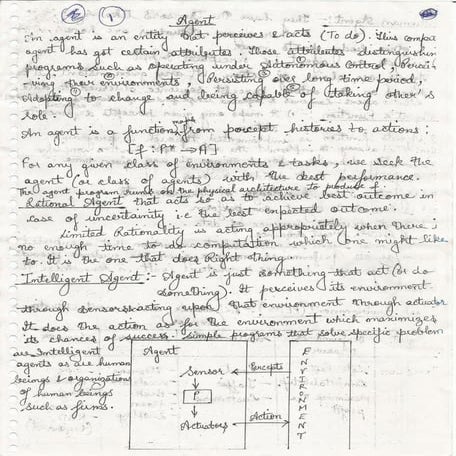 1
Agent
An agent is an entity that perceives & acts (To do). This
agent has got certain attributes. Those attributes distinguish
programs such as operating under Autonomous Control, Percei-
ving their environments, Persisting over long time period,
Adopting to change and being capable of taking other's
role.
An agent is a function maps from percept histories to actions:
[f: P* → A]
For any given class of environments & tasks, we seek the
agent (or class of agents) with the best performance.
The agent program runs on the physical architecture to produce f.
Rational Agent that acts so as to achieve best outcome in
case of uncertainity i.e the best expected outcome.
Limited Rationality is acting appropriately when there i
no enough time to do computation which one might like
to. It is the one that does Right Thing.
Intelligent Agent:- Agent is just something that act (or do
something). It perceives its environment
through sensors & acting upon that environment through actuator
It does the action as for the environment which maximizes
its chances of success. simple programs that solve specific problem
are Intelligent
agents as are human
beings & organizations
of human beings
such as firms.
Agent
Sensor
P
Actuators
Percepts
Action
ENVIRONMENT